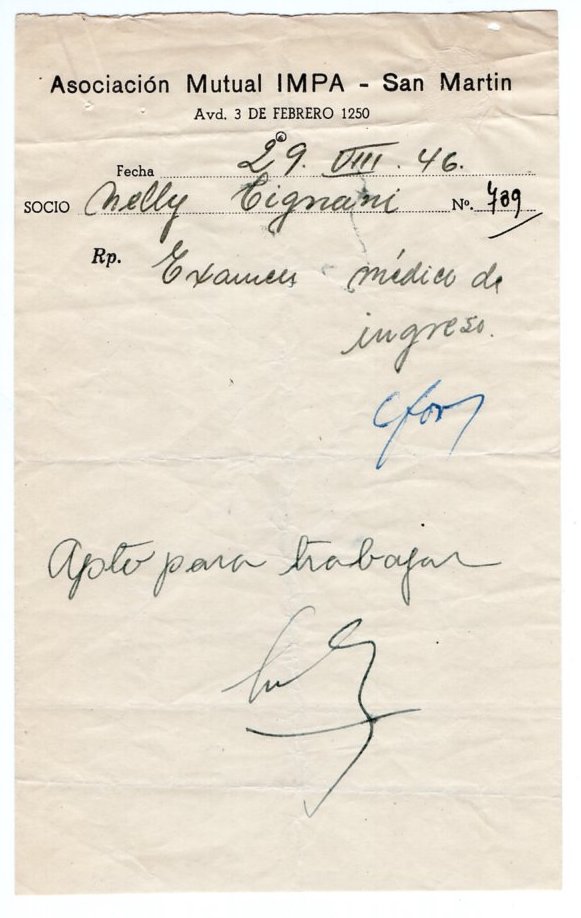 Asociación Mutual IMPA - San Martin
Avd. 3 DE FEBRERO 1250
Fecha 29. VIII. 46.
SOCIO Nelly Cignani Nº. 709
Rp. Examen médico de
ingreso.
Apto para trabajar